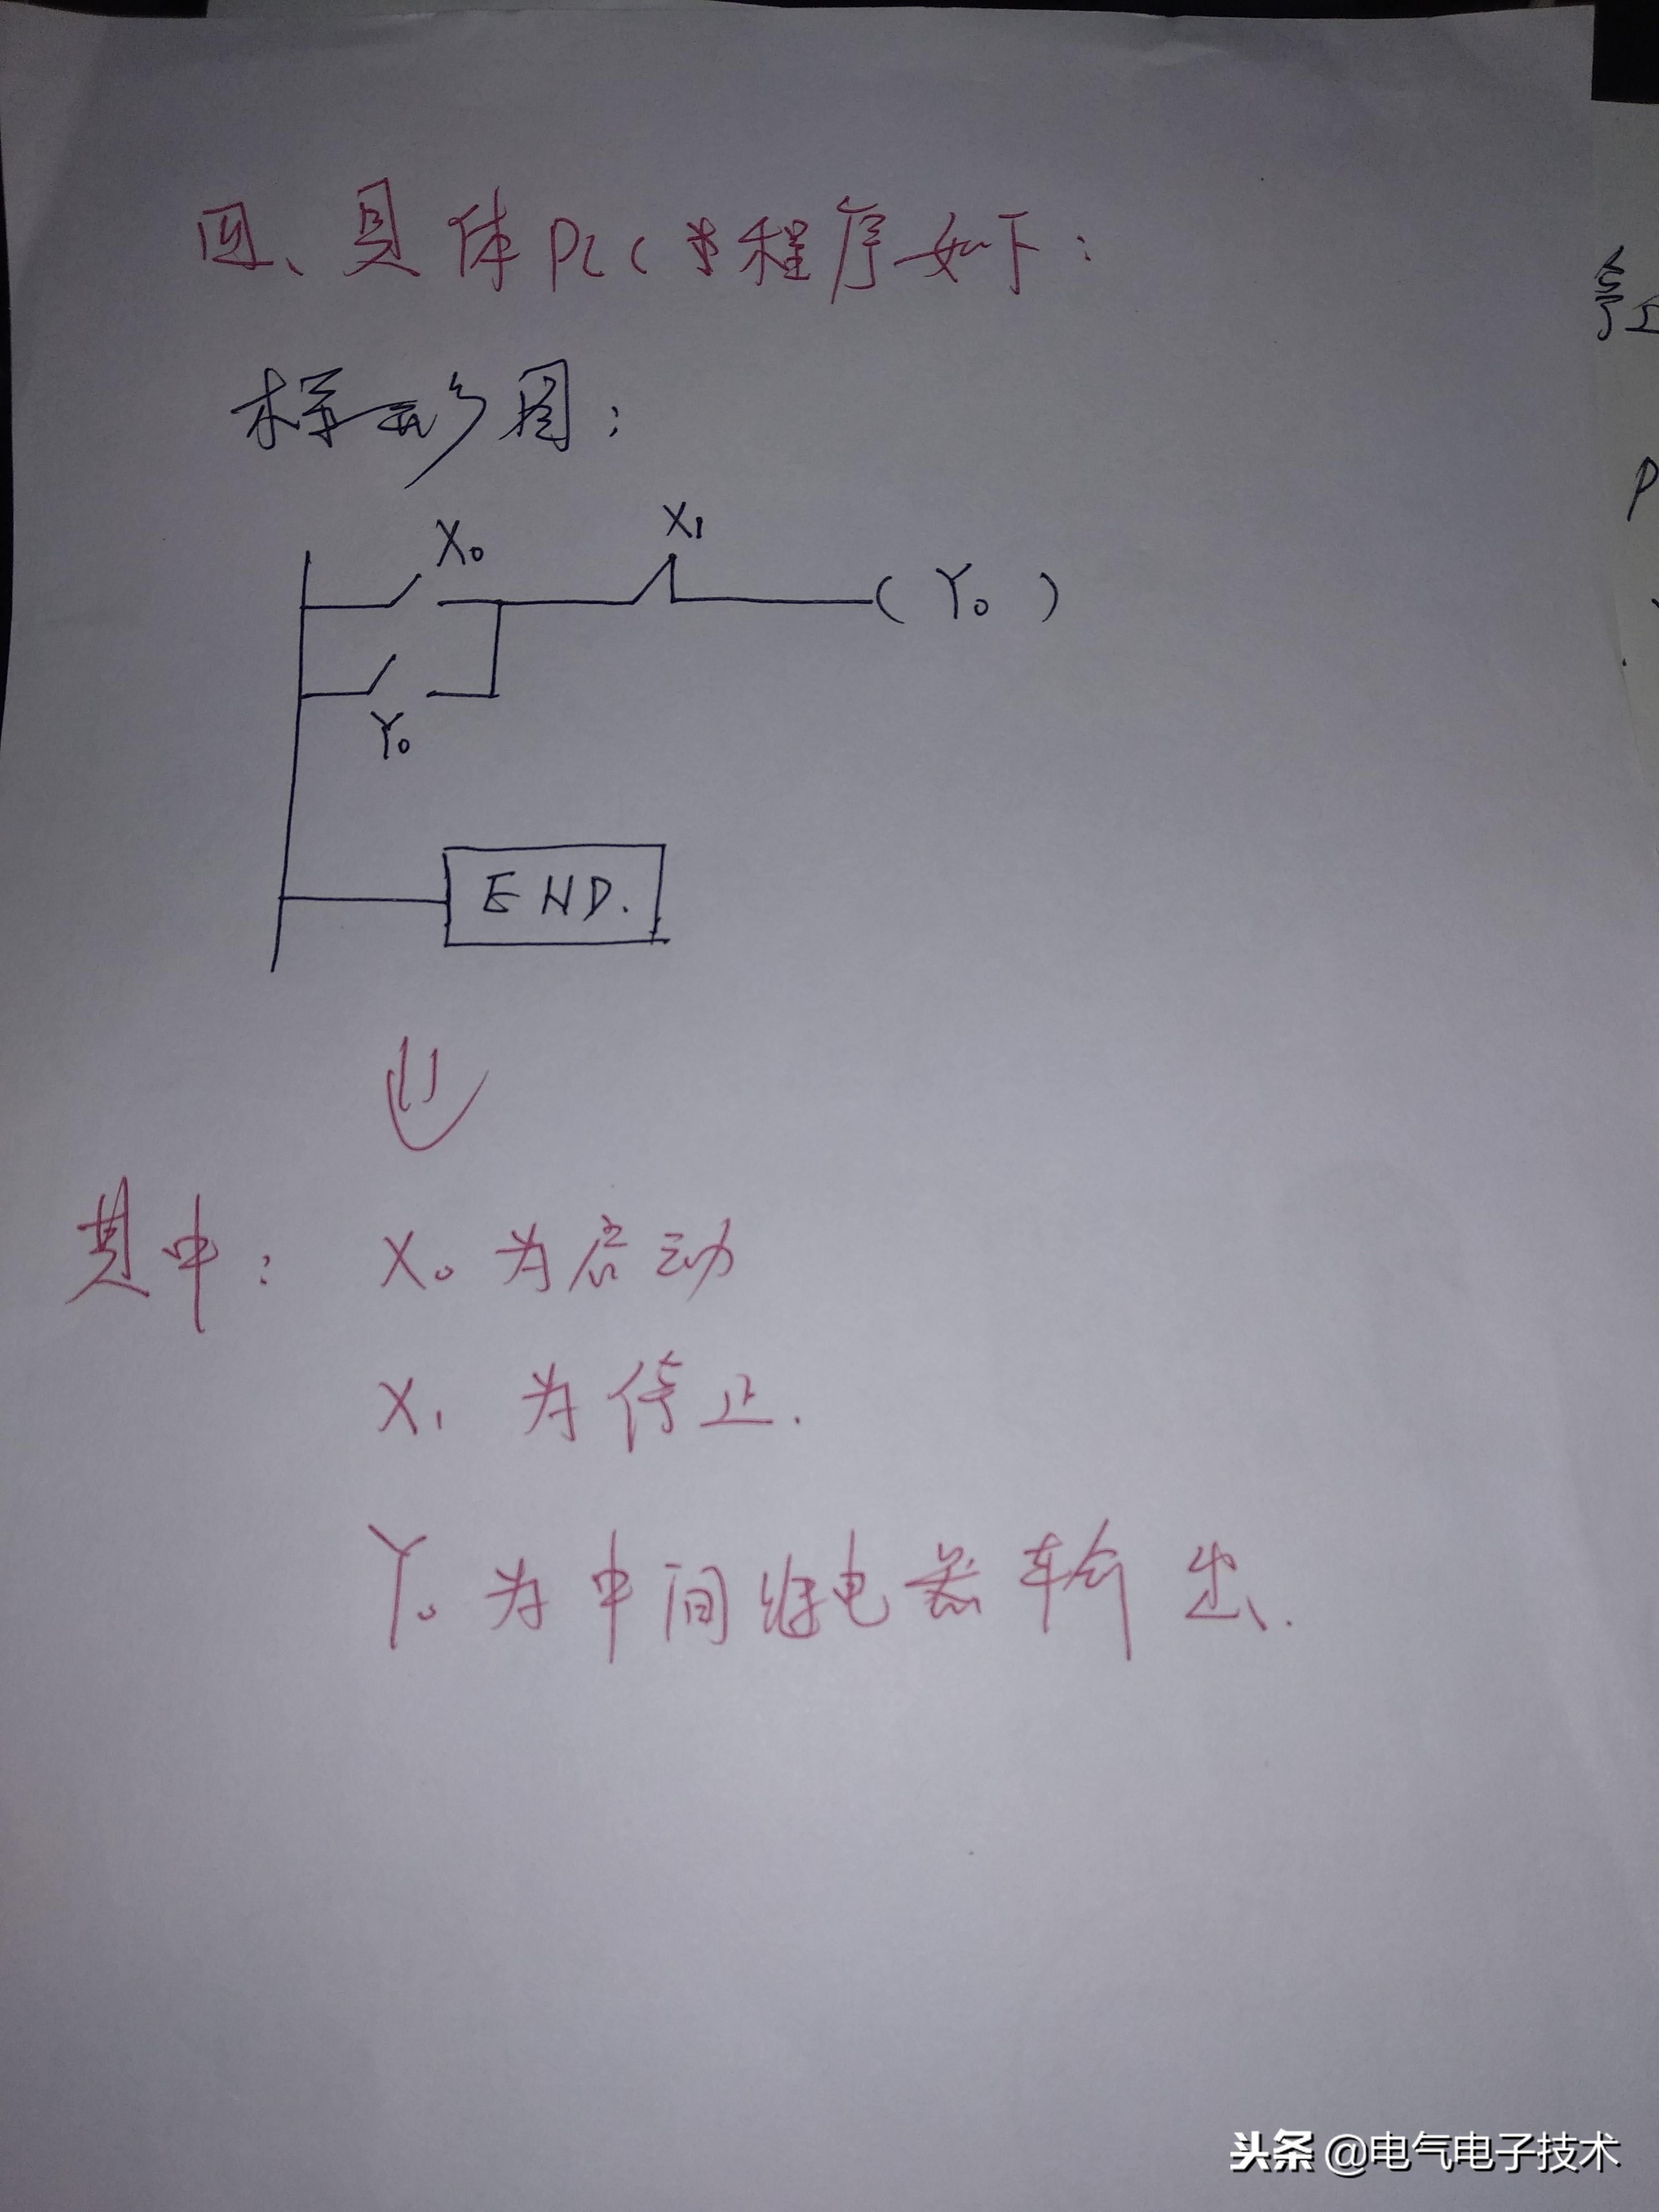 四、具体PLC 程序如下:
梯形图:
X0
X1
(Y0)
Y0
END.
其中: X0为启动
X1 为停止.
Y0为中间继电器输出.
头条 @电气电子技术